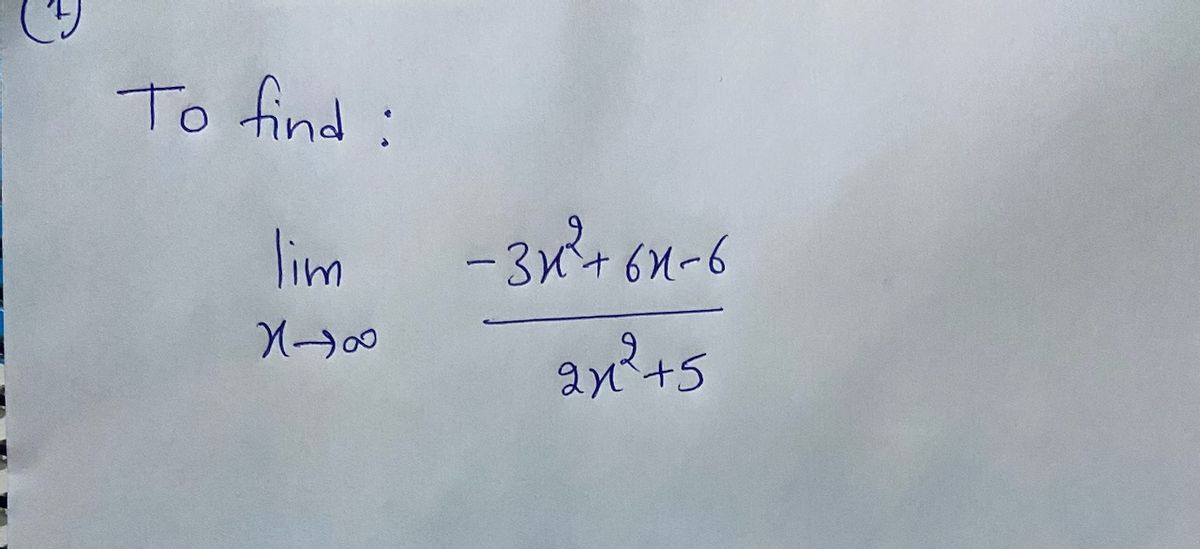 To find :
lim -3x²+ 6x-6
x→∞ 2x²+5